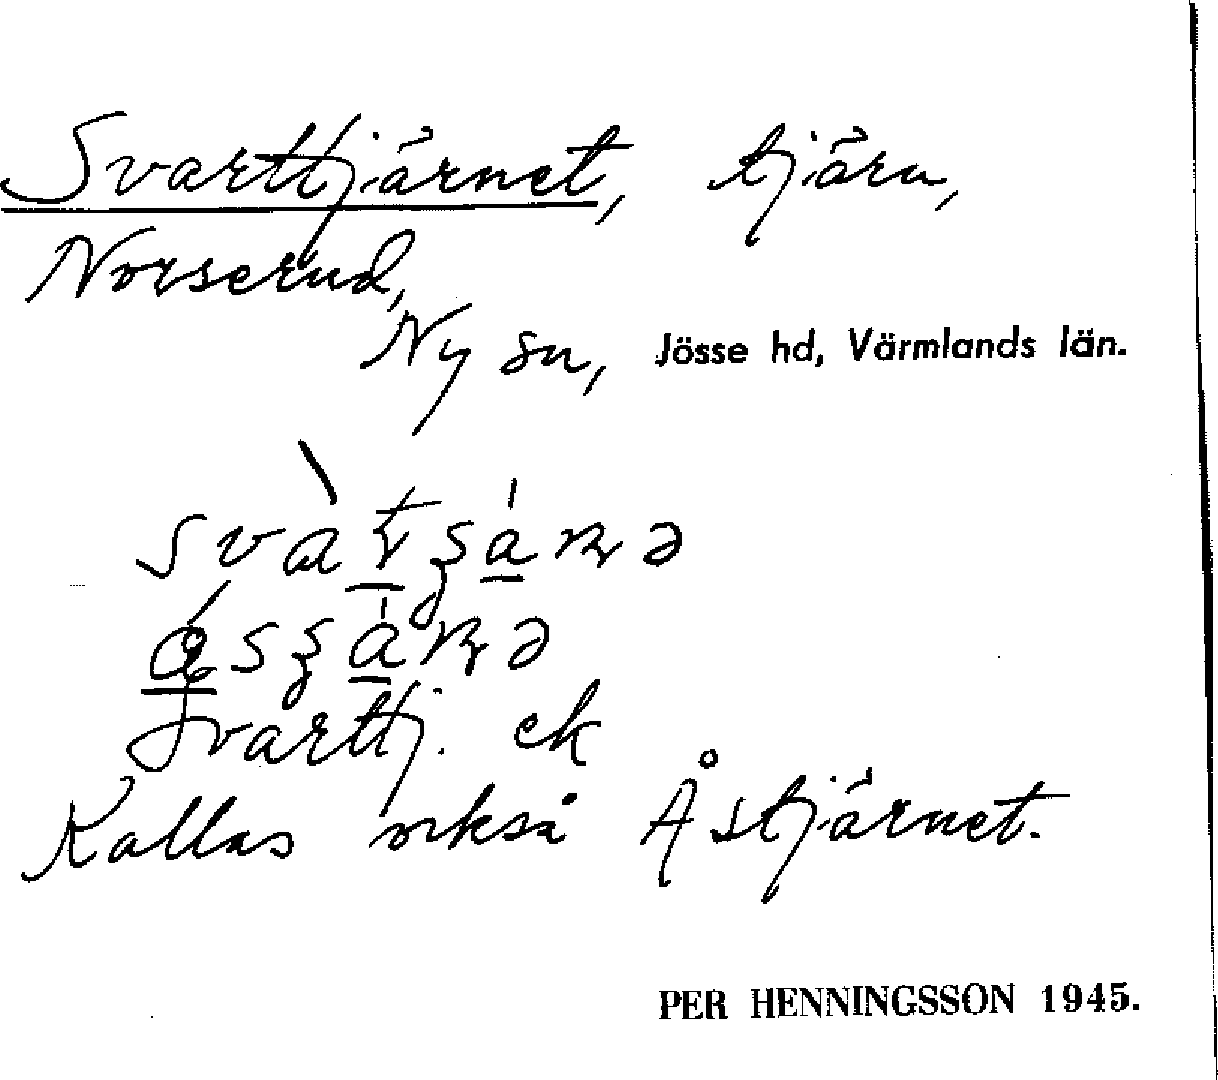 Svarttjärnet, tjärn,
Norserud,
Ny sn, Jösse hd, Värmlands län.
Svarttj. ek
Kallas också Åstjärnet.
PER HENNINGSSON 1945.